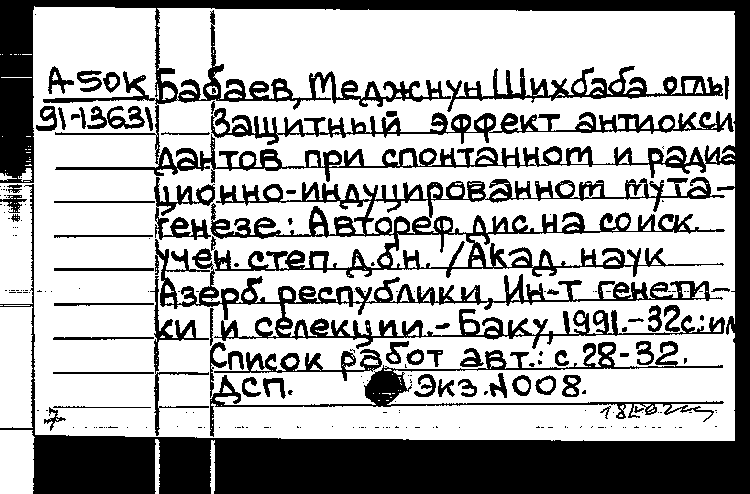 А-50К Бабаев, Меджнун Шихбаба оглы
91-13631 Защитный эффект антиокси
дантов при спонтанном и радиа
ционно-индуцированном мута-
генезе: Автореф. дис. на соиск.
учен. степ. д.б.н. /Акад. наук
Азерб. республики, Ин-т генети-
ки и селекции.-Баку, 1991.-32с.:ил
Список работ авт.: с.28-32.
ДСП. Экз.N008.